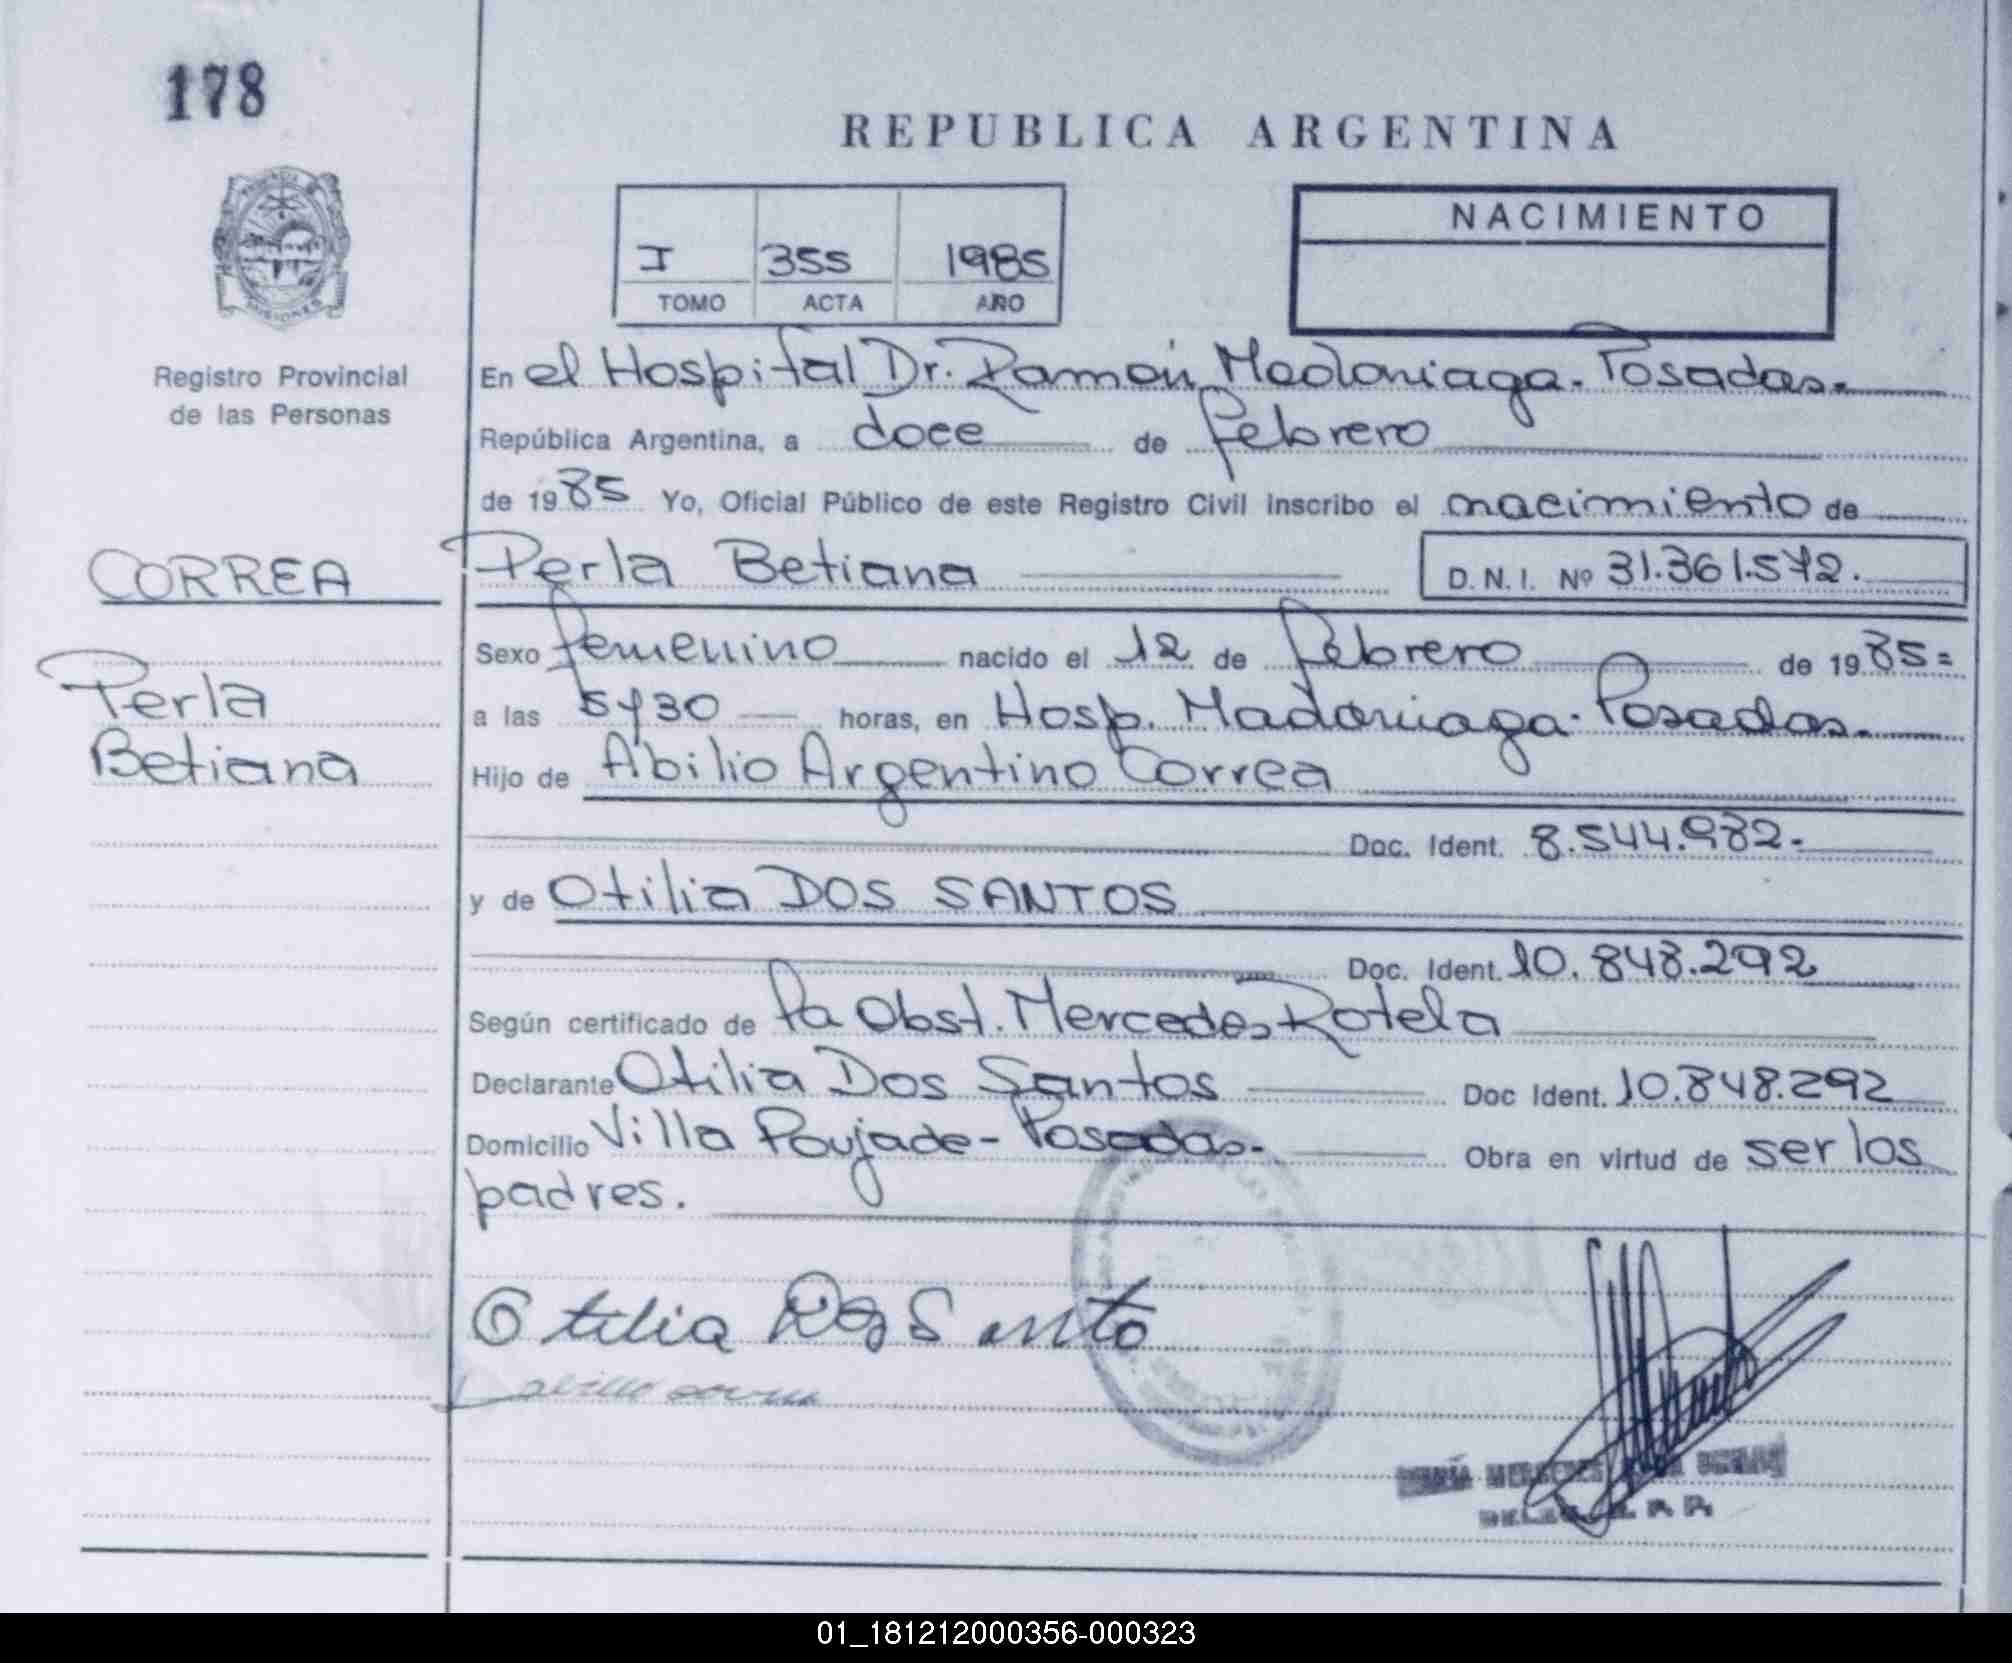 178
REPUBLICA ARGENTINA
NACIMIENTO
I 355 1985
TOMO ACTA AÑO
Registro Provincial
de las Personas
En el Hospital Dr. Ramón Madariaga. Posadas.
República Argentina, a doce de febrero
de 1985 Yo, Oficial Público de este Registro Civil inscribo el nacimiento de
CORREA Perla Betiana D.N.I. Nº 31.361.572.
Sexo femenino nacido el 12 de febrero de 1985=
Perla a las 5 y 30 horas, en Hosp. Madariaga. Posadas.
Betiana Hijo de Abilio Argentino Correa
Doc. Ident. 8.544.982.
y de Otilia DOS SANTOS
Doc. Ident. 10.848.292
Según certificado de la Obst. Mercedes Rotela
Declarante Otilia Dos Santos Doc Ident. 10.848.292
Domicilio Villa Poujade - Posadas. Obra en virtud de ser los
padres.
Otilia Dos Santo
MARÍA MERCEDES
01_181212000356-000323